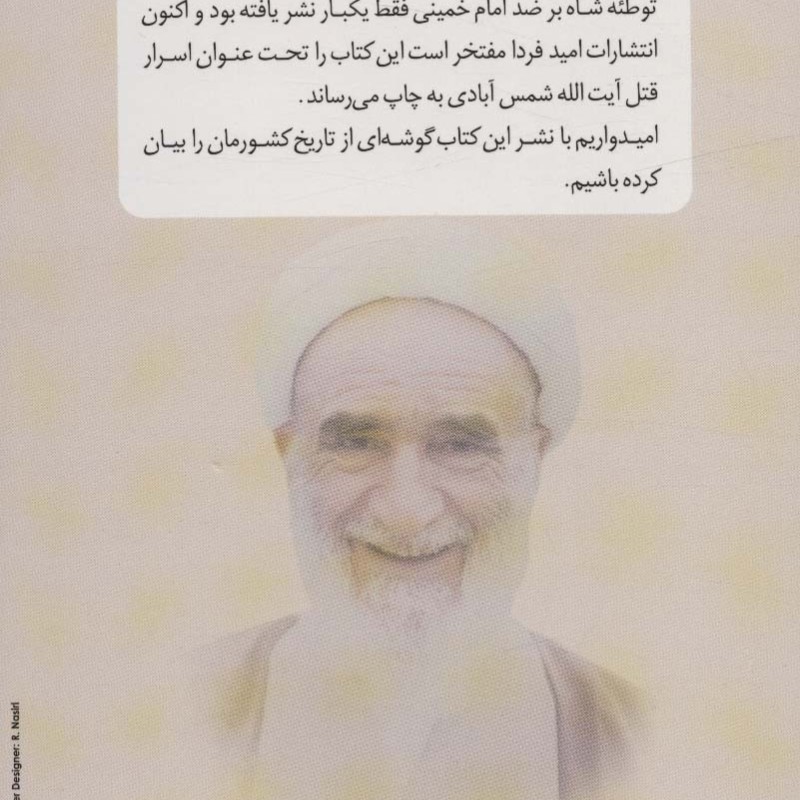 توطئه شاه بر ضد امام خمینی فقط یکبار نشر یافته بود و اکنون
انتشارات امید فردا مفتخر است این کتاب را تحت عنوان اسرار
قتل آیت الله شمس آبادی به چاپ می‌رساند.
امیدواریم با نشر این کتاب گوشه‌ای از تاریخ کشورمان را بیان
کرده باشیم.
er Designer: R. Nasiri